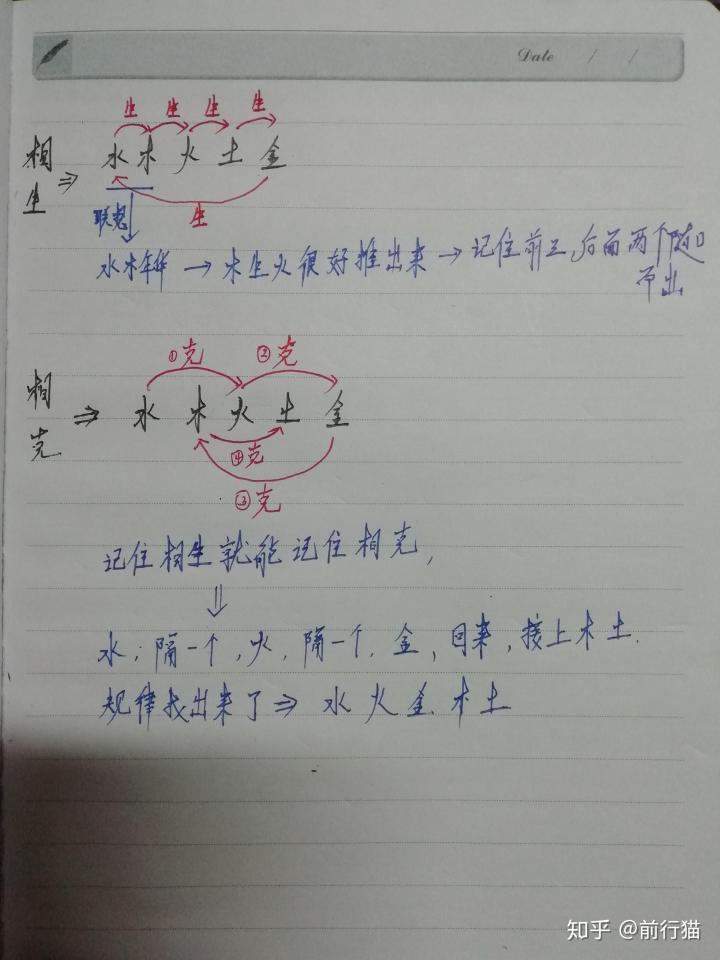 Date / /
生 生 生 生
相生 ⇒ 水 木 火 土 金
生
联想
水木年华 → 木生火很好推出来 → 记住前三,后面两个随口
而出
①克 ②克
相克 ⇒ 水 木 火 土 金
④克
③克
记住相生就能记住相克,
⇓
水,隔一个,火,隔一个,金,回来,接上木土.
规律找出来了 ⇒ 水火金.木土
知乎 @前行猫